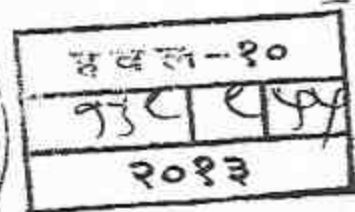 हवल-१०
१३८ ८ ५५
२०१३